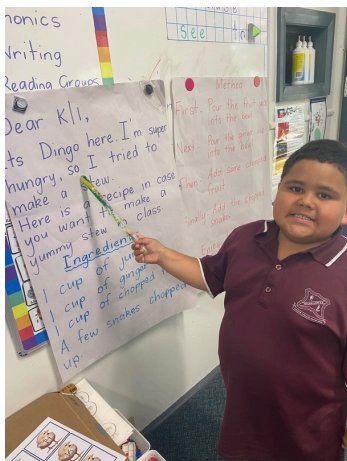 honics
Writing
Reading Groups
See
Dear K11,
Its Dingo here. I'm super
hungry, so I tried to
make a stew.
Here is a recipe in case
you want to make a
yummy stew in class.
Ingredients
1 cup of
1 cup of ginger
1 cup of chopped
A few snakes chopped
up.
Method
First- Pour the fruit
into the bowl
Next- Pour the ginger
into the bowl
Then- Add some chopped
fruit
Finally- Add the chopped
snakes
Enjoy